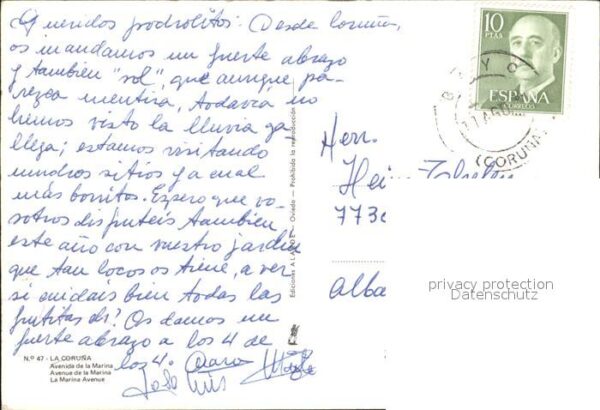 Queridos podrolitos: Desde Coruña,
os mandamos un fuerte abrazo
y tambien "sol", que aunque pa-
rezca mentira, todavia no
hemos visto la lluvia ga
llega; estamos visitando
muchos sitios ya cual
más bonitos. Espero que vo-
sotros disfruteis tambien,
este año con vuestro jardin
que tan locos os tiene, a ver
si cuidais bien todas las
frutitas eh? Os damos un
fuerte abrazo a los 4 de
los 4.
Luis
N.º 47 - LA CORUÑA
Avenida de la Marina
Avenue de la Marina
La Marina Avenue
Oviedo - Prohibida la reproducción
Ediciones
10
PTAS
ESPAÑA
CORREOS
11 AGO
(CORUÑA
Herr.
773
Alba
privacy protection
Datenschutz